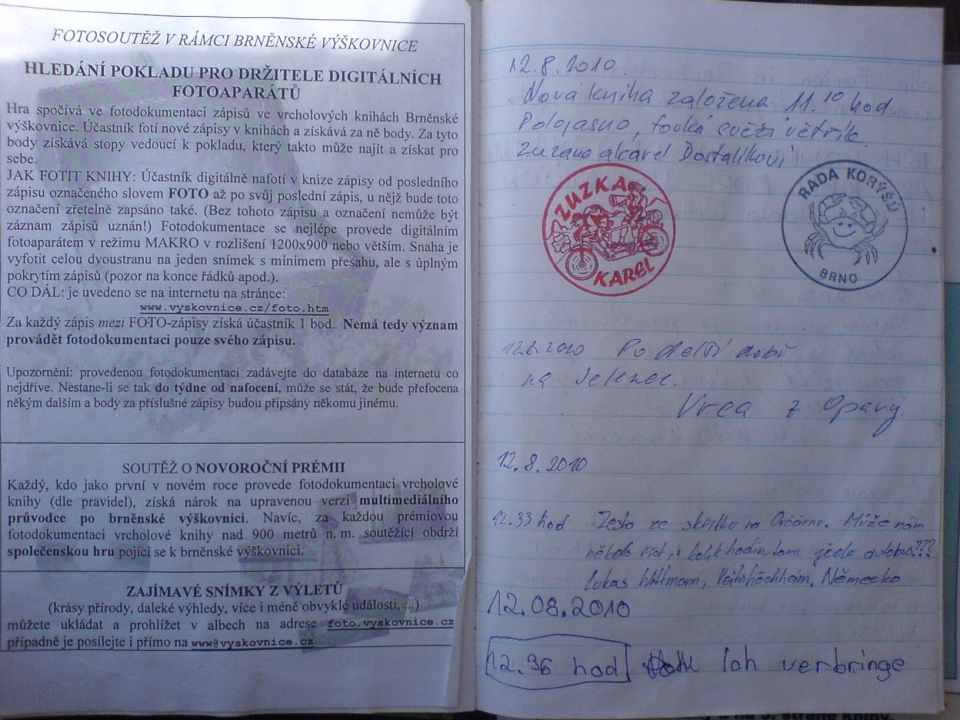 FOTOSOUTĚŽ V RÁMCI BRNĚNSKÉ VÝŠKOVNICE
HLEDÁNÍ POKLADU PRO DRŽITELE DIGITÁLNÍCH
FOTOAPARÁTŮ
Hra spočívá ve fotodokumentaci zápisů ve vrcholových knihách Brněnské
výškovnice. Účastník fotí nové zápisy v knihách a získává za ně body. Za tyto
body získává stopy vedoucí k pokladu, který takto může najít a získat pro
sebe.
JAK FOTIT KNIHY: Účastník digitálně nafotí v knize zápisy od posledního
zápisu označeného slovem FOTO až po svůj poslední zápis, u nějž bude toto
označení zřetelně zapsáno také. (Bez tohoto zápisu a označení nemůže být
záznam zápisů uznán!) Fotodokumentace se nejlépe provede digitálním
fotoaparátem v režimu MAKRO v rozlišení 1200x900 nebo větším. Snaha je
vyfotit celou dvoustranu na jeden snímek s minimem přesahu, ale s úplným
pokrytím zápisů (pozor na konce řádků apod.).
CO DÁL: je uvedeno se na internetu na stránce:
www.vyskovnice.cz/foto.htm
Za každý zápis mezi FOTO-zápisy získá účastník 1 bod. Nemá tedy význam
provádět fotodokumentaci pouze svého zápisu.
Upozornění: provedenou fotodokumentaci zadávejte do databáze na internetu co
nejdříve. Nestane-li se tak do týdne od nafocení, může se stát, že bude přefocena
někým dalším a body za příslušné zápisy budou připsány někomu jinému.
SOUTĚŽ O NOVOROČNÍ PRÉMII
Každý, kdo jako první v novém roce provede fotodokumentaci vrcholové
knihy (dle pravidel), získá nárok na upravenou verzi multimediálního
průvodce po brněnské výškovnici. Navíc, za každou prémiovou
fotodokumentaci vrcholové knihy nad 900 metrů n. m. soutěžící obdrží
společenskou hru pojící se k brněnské výškovnici.
ZAJÍMAVÉ SNÍMKY Z VÝLETŮ
(krásy přírody, daleké výhledy, více i méně obvyklé události, ...)
můžete ukládat a prohlížet v albech na adrese foto.vyskovnice.cz
případně je posílejte i přímo na www@vyskovnice.cz
12.8.2010
Nová kniha založena 11.10 hod.
Polojasno, fouká svěží větřík.
Zuzana a Karel Dostalíkovi
ZUZKA
KAREL
RADA KORÝŠŮ
BRNO
12.8.2010 Po delší době
na
Vrca z Opavy
12.8.2010
12.33 hod Cesta ze na Může nám
někdo říct, v kolik hodin tam jede autobus???
Lukas Wittmann, Veitshöchheim, Německo
12.08.2010
12.36 hod Ich verbringe